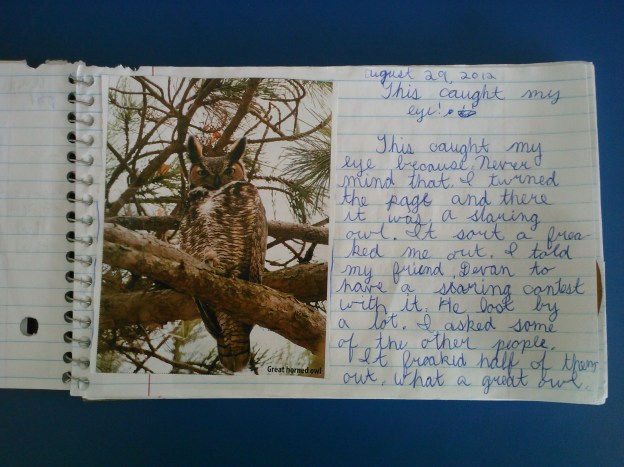 august 29, 2012
This caught my
eye!
This caught my
eye because. Never
mind that. I turned
the page and there
it was a staring
owl. It sort a frea
ked me out. I told
my friend, Devan to
have a staring contest
with it. He lost by
a lot. I asked some
of the other people.
It freakid half of them
out. What a great owl.
Great horned owl